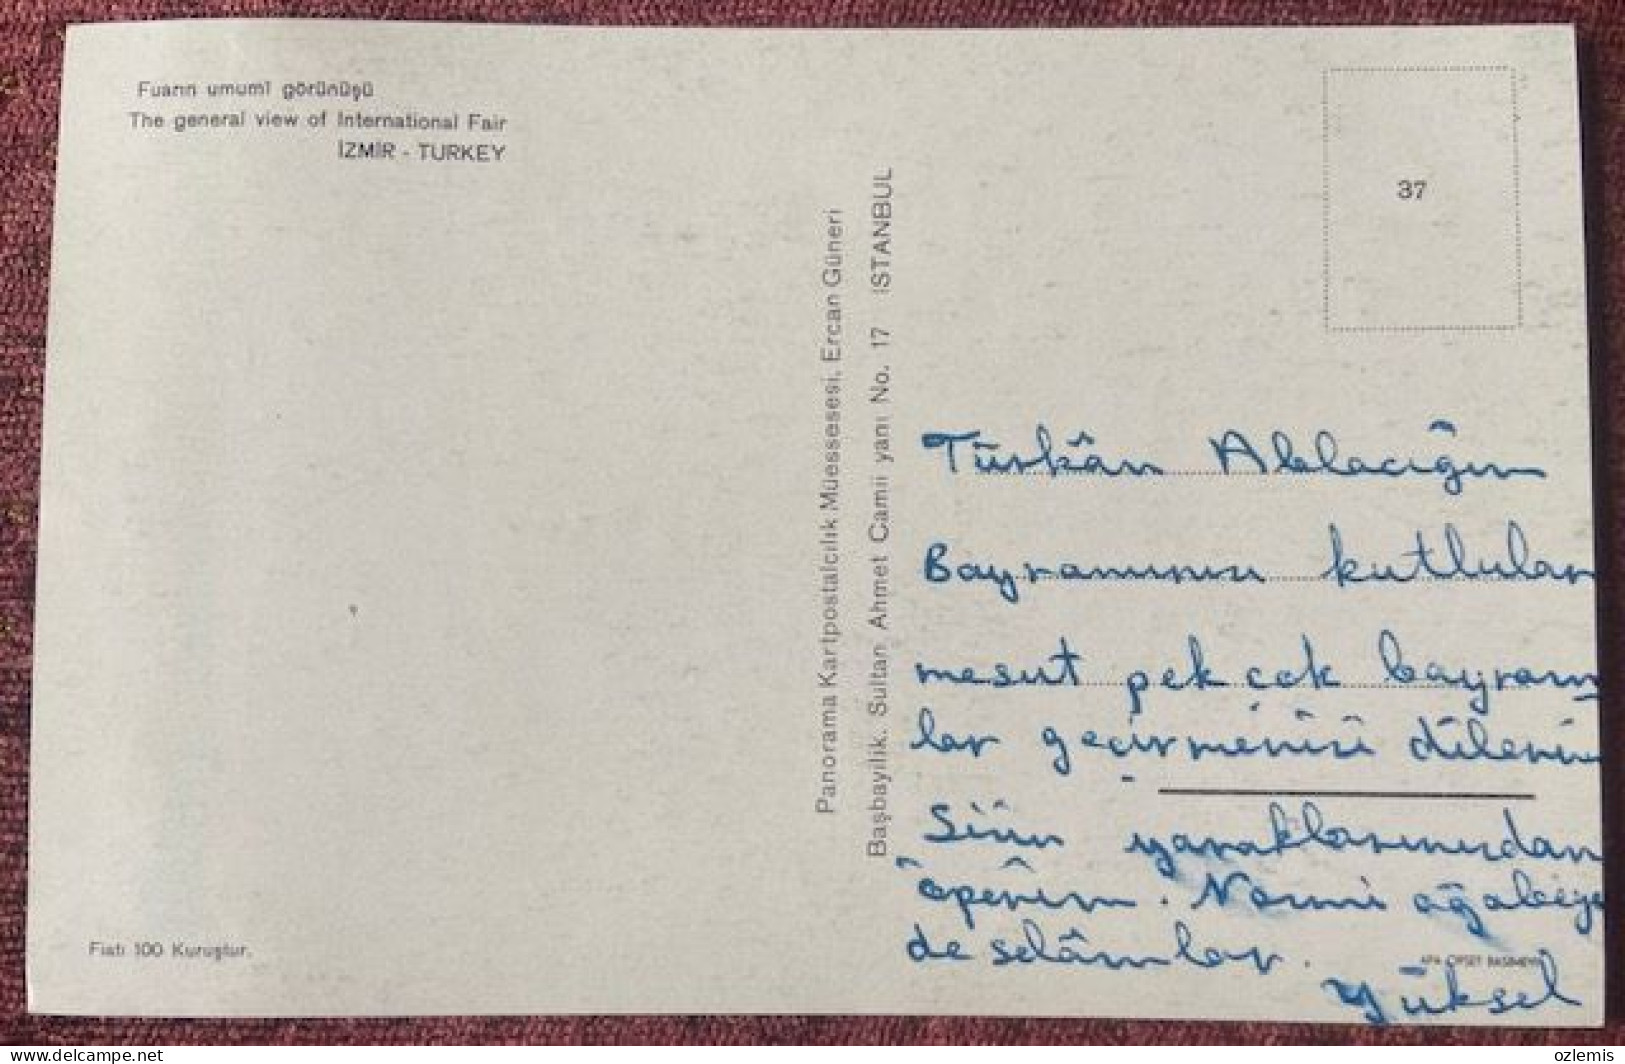 Fuarın umumî görünüşü
The general view of International Fair
İZMİR - TURKEY
37
Panorama Kartpostalcılık Müessesesi, Ercan Güneri
Başbayilik. Sultan Ahmet Camii yanı No. 17 ISTANBUL
Türkân Ablacığım
Bayramınızı kutlular
mesut pek çok bayram
lar geçirmenizi dilerim
Sizin yanaklarınızdan
öperim. Naumi ağabeye
de selâmlar.
Yüksel
Fiatı 100 Kuruştur.
APA OFSET BASIMEVİ
delcampe.net
ozlemis